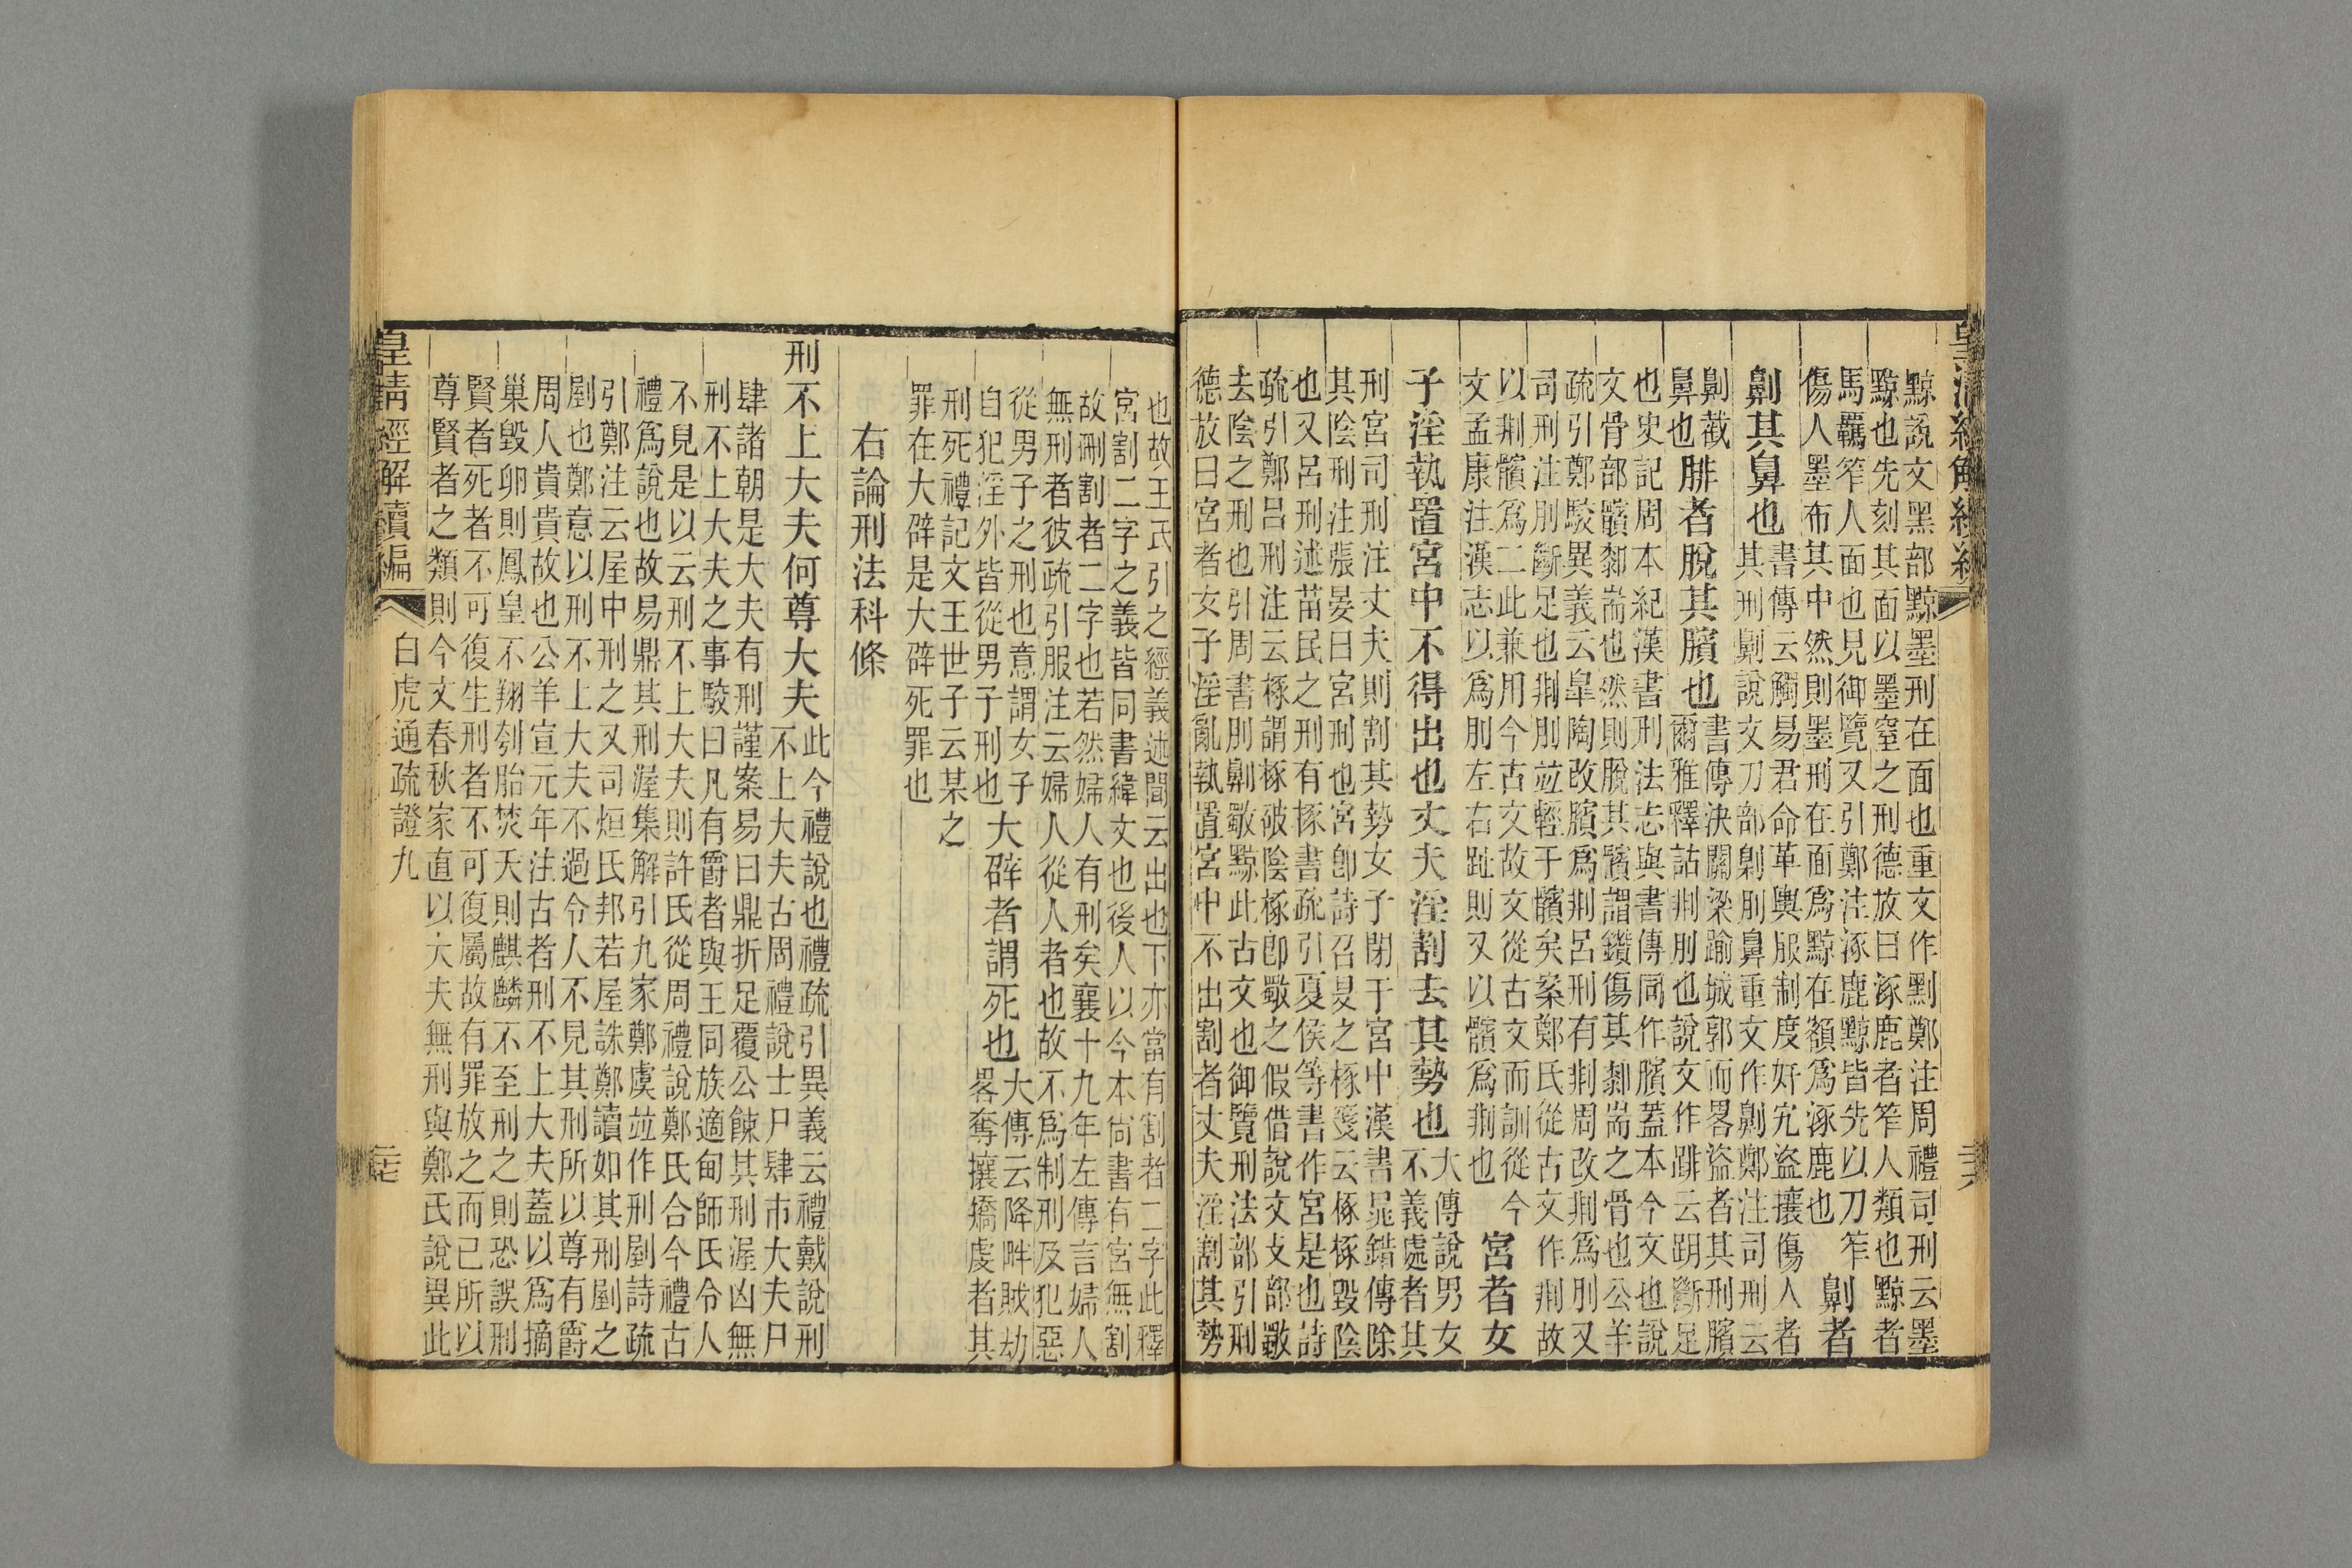 皇清經解續編
黥說文黑部黥墨刑在面也重文作剠鄭注周禮司刑云墨
黥也先刻其面以墨窒之刑德放曰涿鹿者笮人顙也黥者
馬羈笮人面也見御覽又引鄭注涿鹿黥皆先以刀笮
傷人墨布其中然則墨刑在面爲黥在額爲涿鹿也
劓者
劓其鼻也
書傳云觸易君命革輿服制度奸宄盜攘傷人者
其刑劓說文刀部劓刖鼻重文作劓鄭注司刑云
劓截
鼻也
腓者脫其臏也
書傳決關梁踰城郭而畧盜者其刑臏
爾雅釋詁剕刖也說文作跰云跀斷足
也史記周本紀漢書刑法志與書傳同作臏蓋本今文也說
文骨部髕厀耑也然則脫其髕謂鑽傷其厀耑之骨也公羊
疏引鄭駁異義云皐陶改臏爲剕呂刑有剕周改剕爲刖又
司刑注刖斷足也剕刖竝輕于髕矣案鄭氏從古文作剕故
以剕髕爲二此兼用今古文故文從古文而訓從今
文孟康注漢志以爲刖左右趾則又以髕爲剕也
宮者女
子淫執置宮中不得出也丈夫淫割去其勢也
大傳說男女
不義處者其
刑宮司刑注丈夫則割其勢女子閉于宮中漢書晁錯傳除
其陰刑注張晏曰宮刑也宮卽詩召旻之椓箋云椓椓毀陰
也又呂刑述苗民之刑有椓書疏引夏侯等書作宮是也詩
疏引鄭呂刑注云椓謂椓破陰椓卽斀之假借說文攴部斀
去陰之刑也引周書刖劓斀黥此古文也御覽刑法部引刑
德放曰宮者女子淫亂執置宮中不出割者丈夫淫割其勢
也故王氏引之經義述聞云出也下亦當有割者二字此釋
宮割二字之義皆同書緯文也後人以今本尙書有宮無割
故刪割者二字也若然婦人有刑矣襄十九年左傳言婦人
無刑者彼疏引服注云婦人從人者也故不爲制刑及犯惡
從男子之刑也意謂女子
自犯淫外皆從男子刑也
大辟者謂死也
大傳云降畔賊劫
畧奪攘撟虔者其
刑死禮記文王世子云某之
罪在大辟是大辟死罪也
右論刑法科條
刑不上大夫何尊大夫
此今禮說也禮疏引異義云禮戴說刑
不上大夫古周禮說士尸肆市大夫尸
肆諸朝是大夫有刑謹案易曰鼎折足覆公餗其刑渥凶無
刑不上大夫之事駮曰凡有爵者與王同族適甸師氏令人
不見是以云刑不上大夫則許氏從周禮說鄭氏合今禮古
禮爲說也故易鼎其刑渥集解引九家鄭虞竝作刑剭詩疏
引鄭注云屋中刑之又司烜氏邦若屋誅鄭讀如其刑剭之
剭也鄭意以刑不上大夫不過令人不見其刑所以尊有爵
周人貴貴故也公羊宣元年注古者刑不上大夫蓋以爲摘
巢毀卵則鳳皇不翔刳胎焚夭則麒麟不至刑之則恐誤刑
賢者死者不可復生刑者不可復屬故有罪放之而已所以
尊賢者之類則今文春秋家直以大夫無刑與鄭氏說異此
皇清經解續編
白虎通疏證九